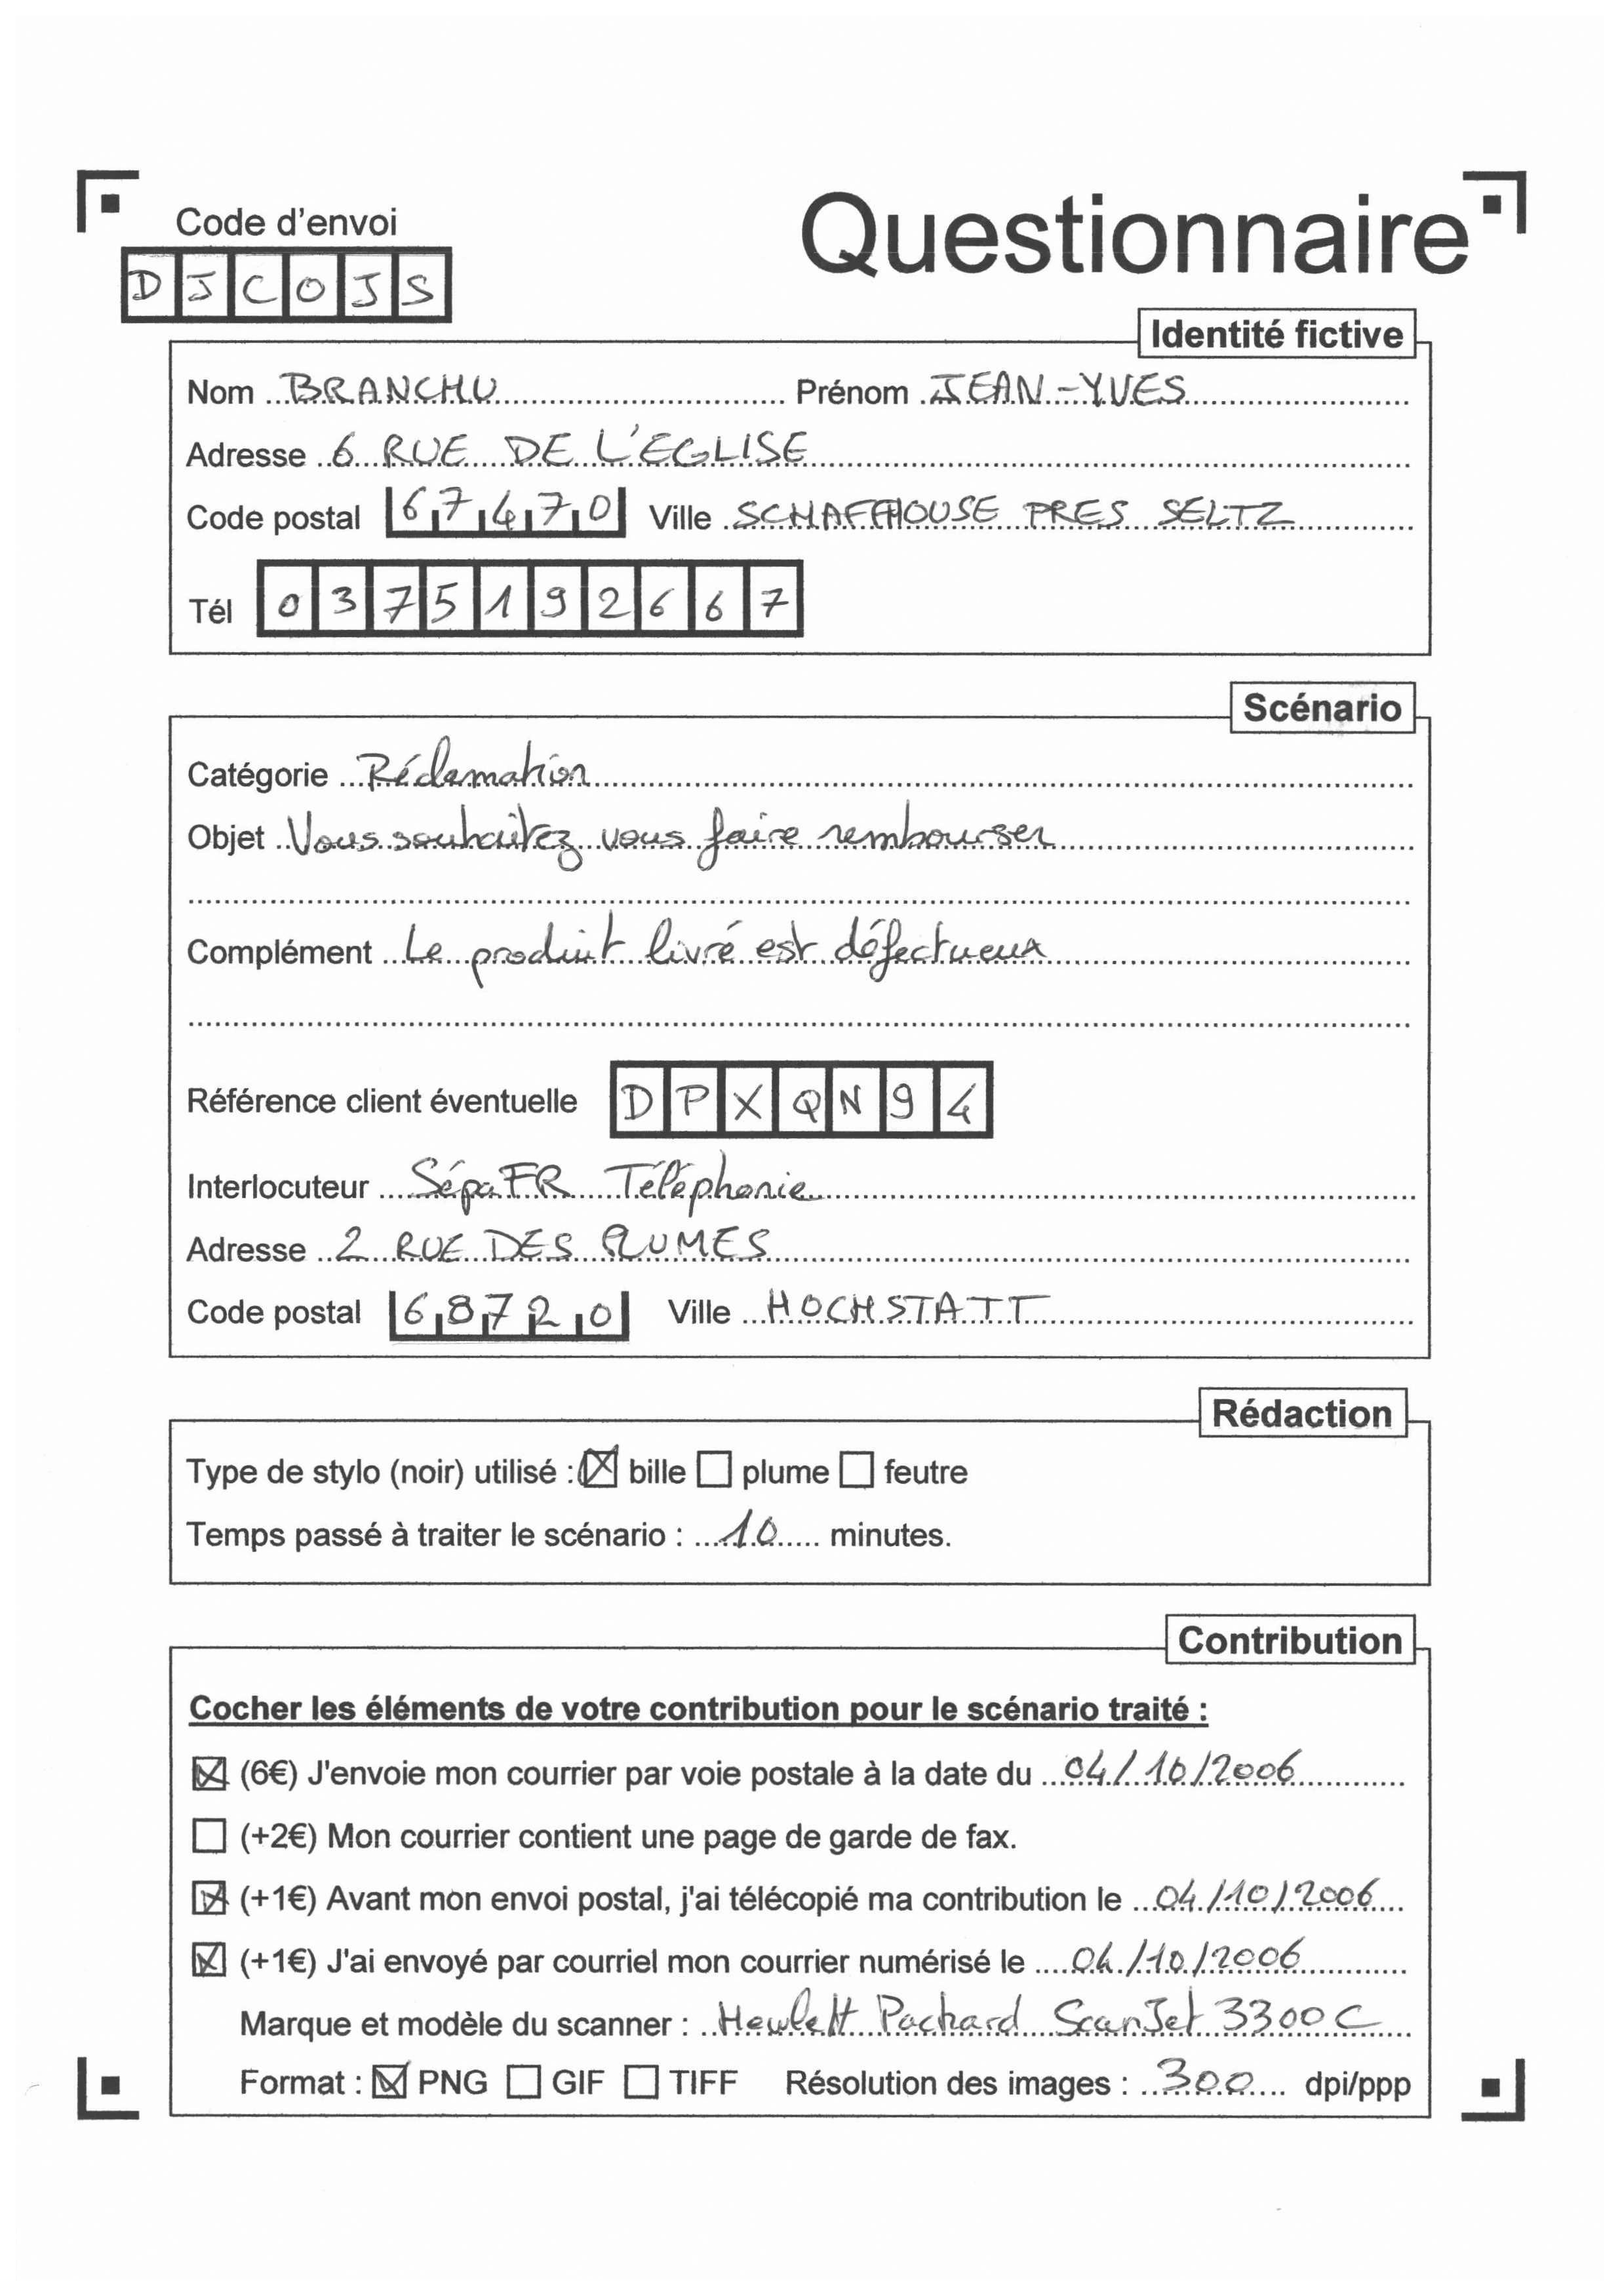 Code d'envoi
Questionnaire
DJCOJS
Identité fictive
Nom BRANCHU Prénom JEAN-YVES
Adresse 6 RUE DE L'EGLISE
Code postal 67470 Ville SCHAFFHOUSE PRES SELTZ
Tél 0375192667
Scénario
Catégorie Réclamation
Objet Vous souhaitez vous faire rembourser
Complément Le produit livré est défectueux
Référence client éventuelle DPXQN94
Interlocuteur SépaFR Téléphonie
Adresse 2 RUE DES PLUMES
Code postal 68720 Ville HOCHSTATT
Rédaction
Type de stylo (noir) utilisé : ☒ bille ☐ plume ☐ feutre
Temps passé à traiter le scénario : 10 minutes.
Contribution
Cocher les éléments de votre contribution pour le scénario traité :
☒ (6€) J'envoie mon courrier par voie postale à la date du 04/10/2006
☐ (+2€) Mon courrier contient une page de garde de fax.
☒ (+1€) Avant mon envoi postal, j'ai télécopié ma contribution le 04/10/2006
☒ (+1€) J'ai envoyé par courriel mon courrier numérisé le 04/10/2006
Marque et modèle du scanner : Hewlett Packard ScanJet 3300C
Format : ☒ PNG ☐ GIF ☐ TIFF Résolution des images : 300 dpi/ppp